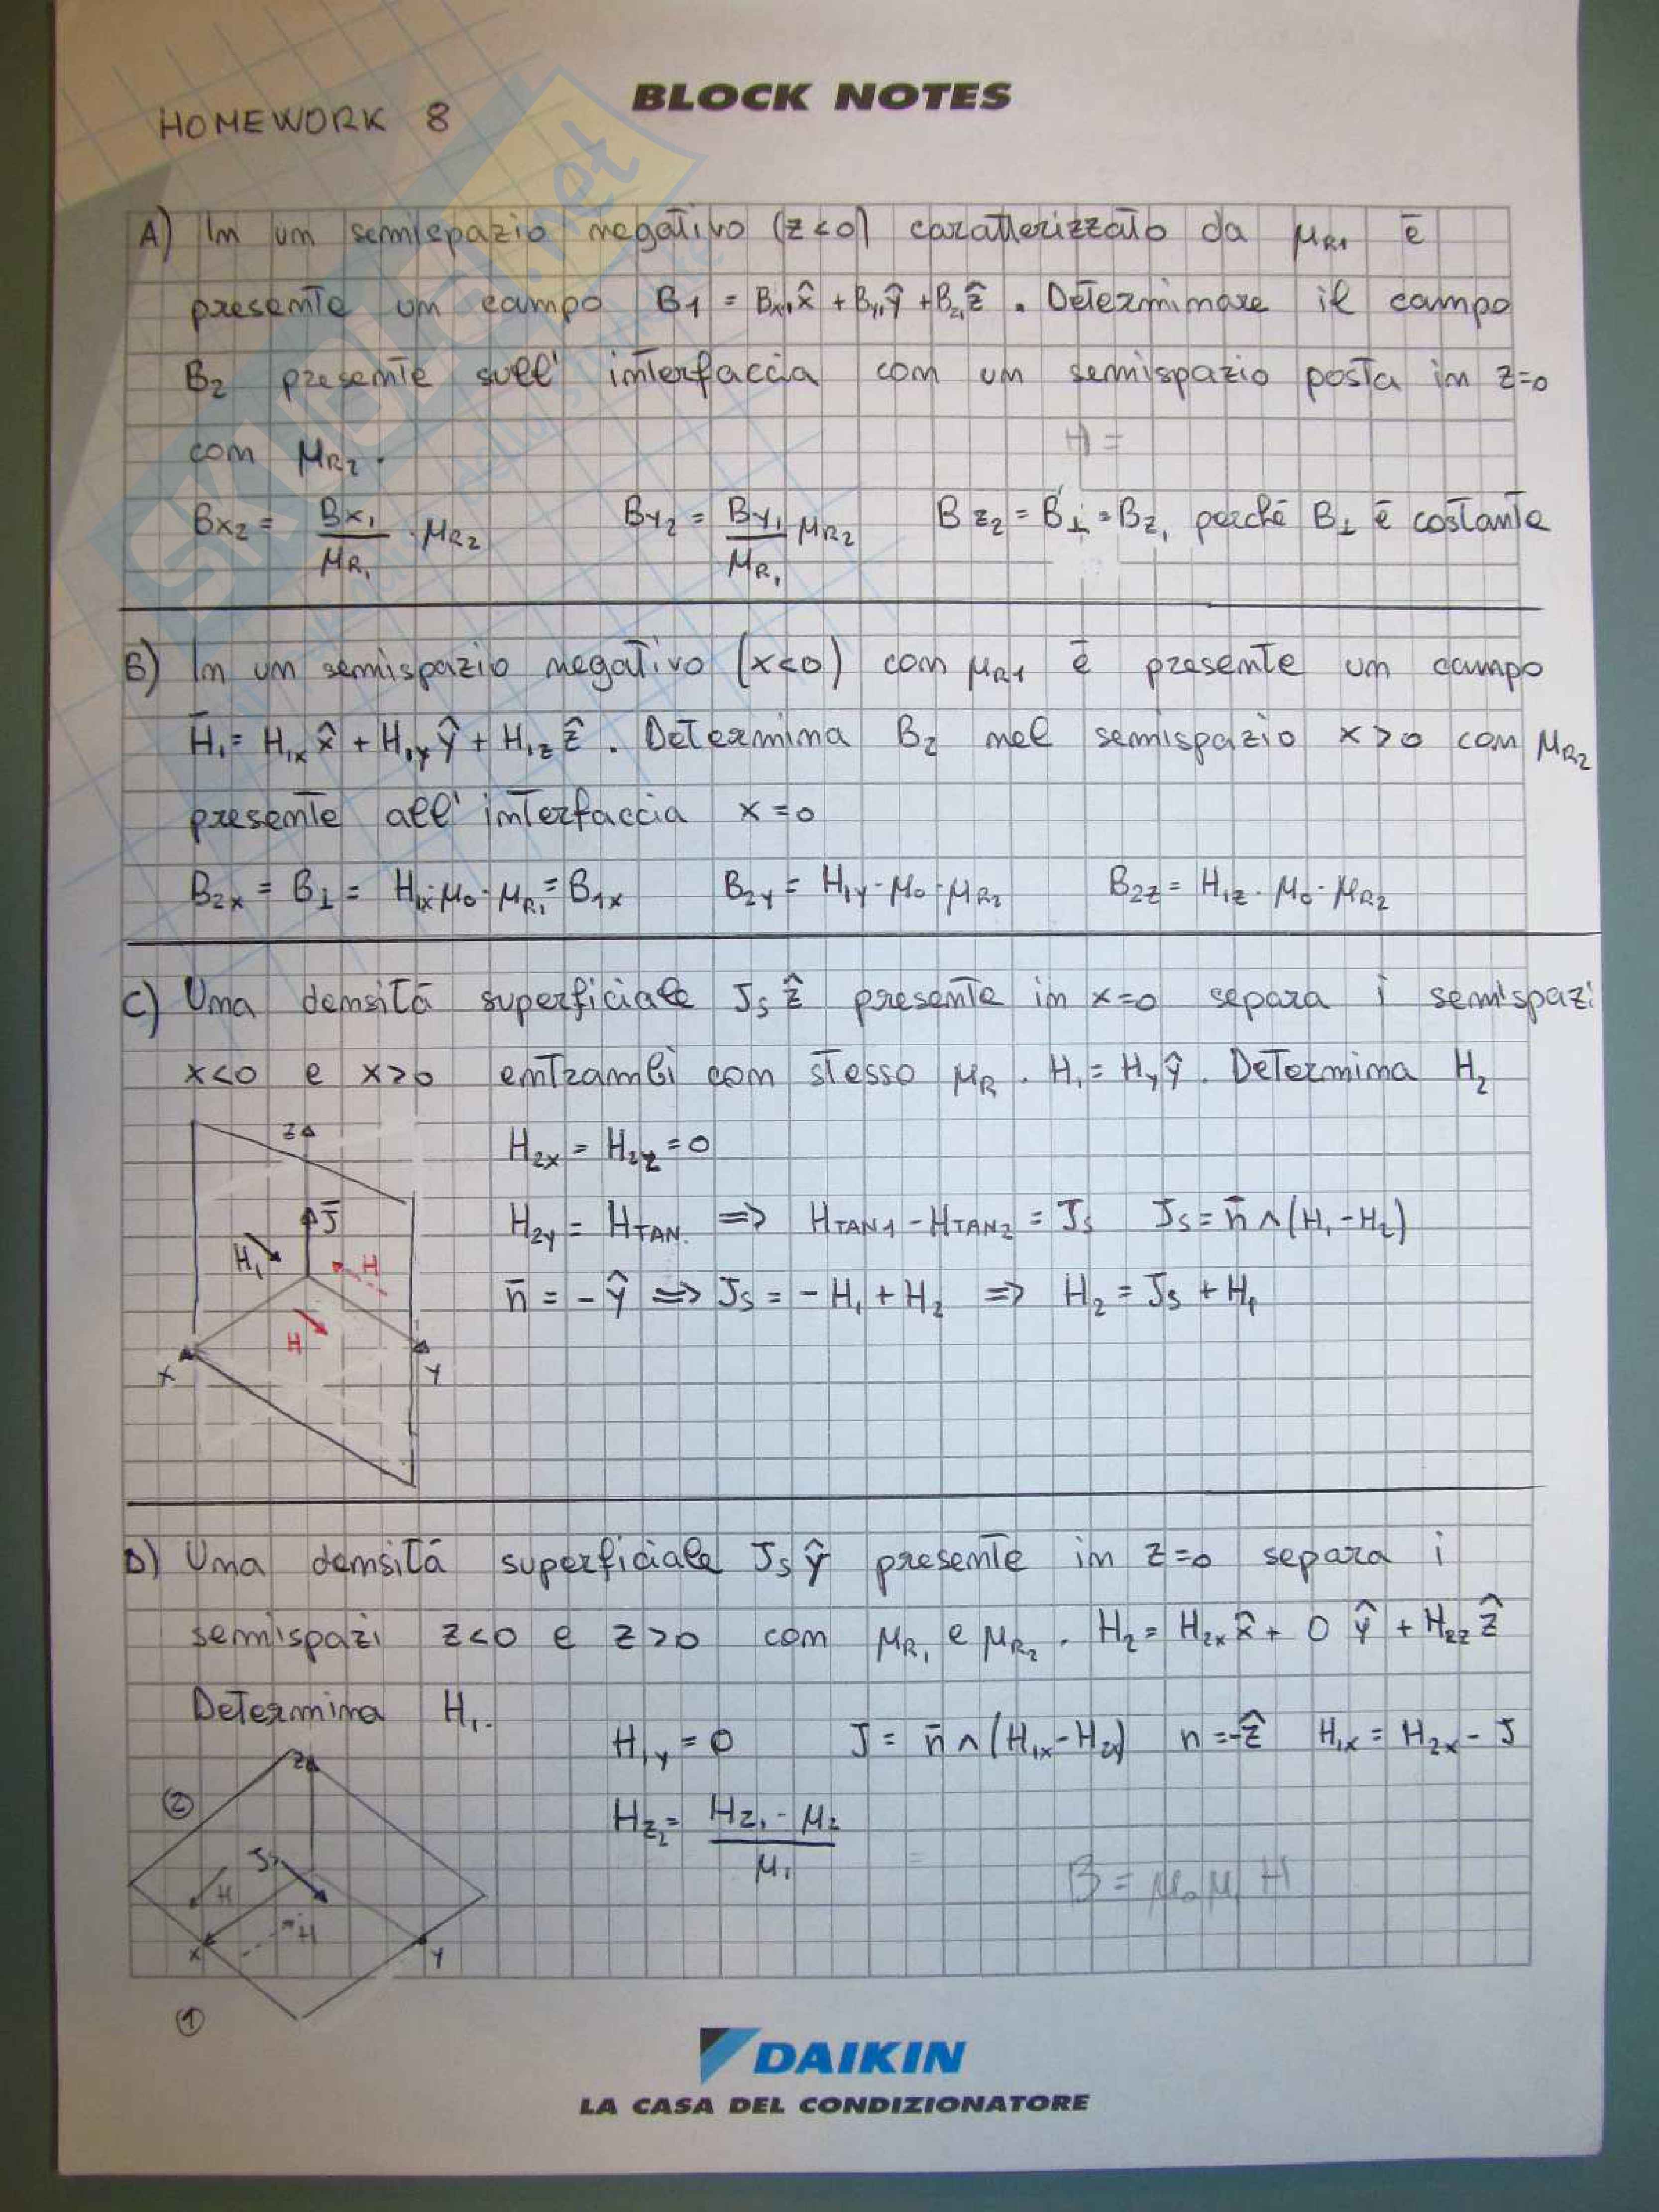 BLOCK NOTES
HOMEWORK 8
SKUOLA.net
A) In un semispazio negativo (z<0) caratterizzato da μR1 è
presente un campo B1 = Bx1 x̂ + By1 ŷ + Bz1 ẑ . Determinare il campo
B2 presente sull' interfaccia con un semispazio posta in z=0
com μR2.
H =
Bx2 = Bx1/μR1 · μR2 By2 = By1/μR1 μR2 Bz2 = B⊥ = Bz1 perchē B⊥ ē costante
B) In un semispazio negativo (x<0) con μR1 ē presente un campo
H̄1 = H1x x̂ + H1y ŷ + H1z ẑ . Determina B2 nel semispazio x>0 con μR2
presente all' interfaccia x=0
B2x = B⊥ = H1x·μ0·μR1 = B1x B2y = H1y·μ0·μR2 B2z = H1z·μ0·μR2
C) Una densitā superficiale Js ẑ presente in x=0 separa i semispazi
x<0 e x>0 entrambi con stesso μR . H1 = Hy ŷ . Determina H2
H2x = H2z = 0
H2y = HTAN. => HTAN1 - HTAN2 = Js Js = n̄ ∧ (H1 - H2)
n̄ = - ŷ => Js = - H1 + H2 => H2 = Js + H1
z
J̄
H1
H
H
x
y
D) Una densitā superficiale Js ŷ presente in z=0 separa i
semispazi z<0 e z>0 con μR1 e μR2 . H2 = H2x x̂ + 0 ŷ + H2z ẑ
Determina H1.
H1y = 0 J = n̄ ∧ (H1x - H2x) n = -ẑ H1x = H2x - J
Hz2 = Hz1 · μ2 / μ1
B = μ0 μ H
z
2
J
H
H
x
y
1
DAIKIN
LA CASA DEL CONDIZIONATORE